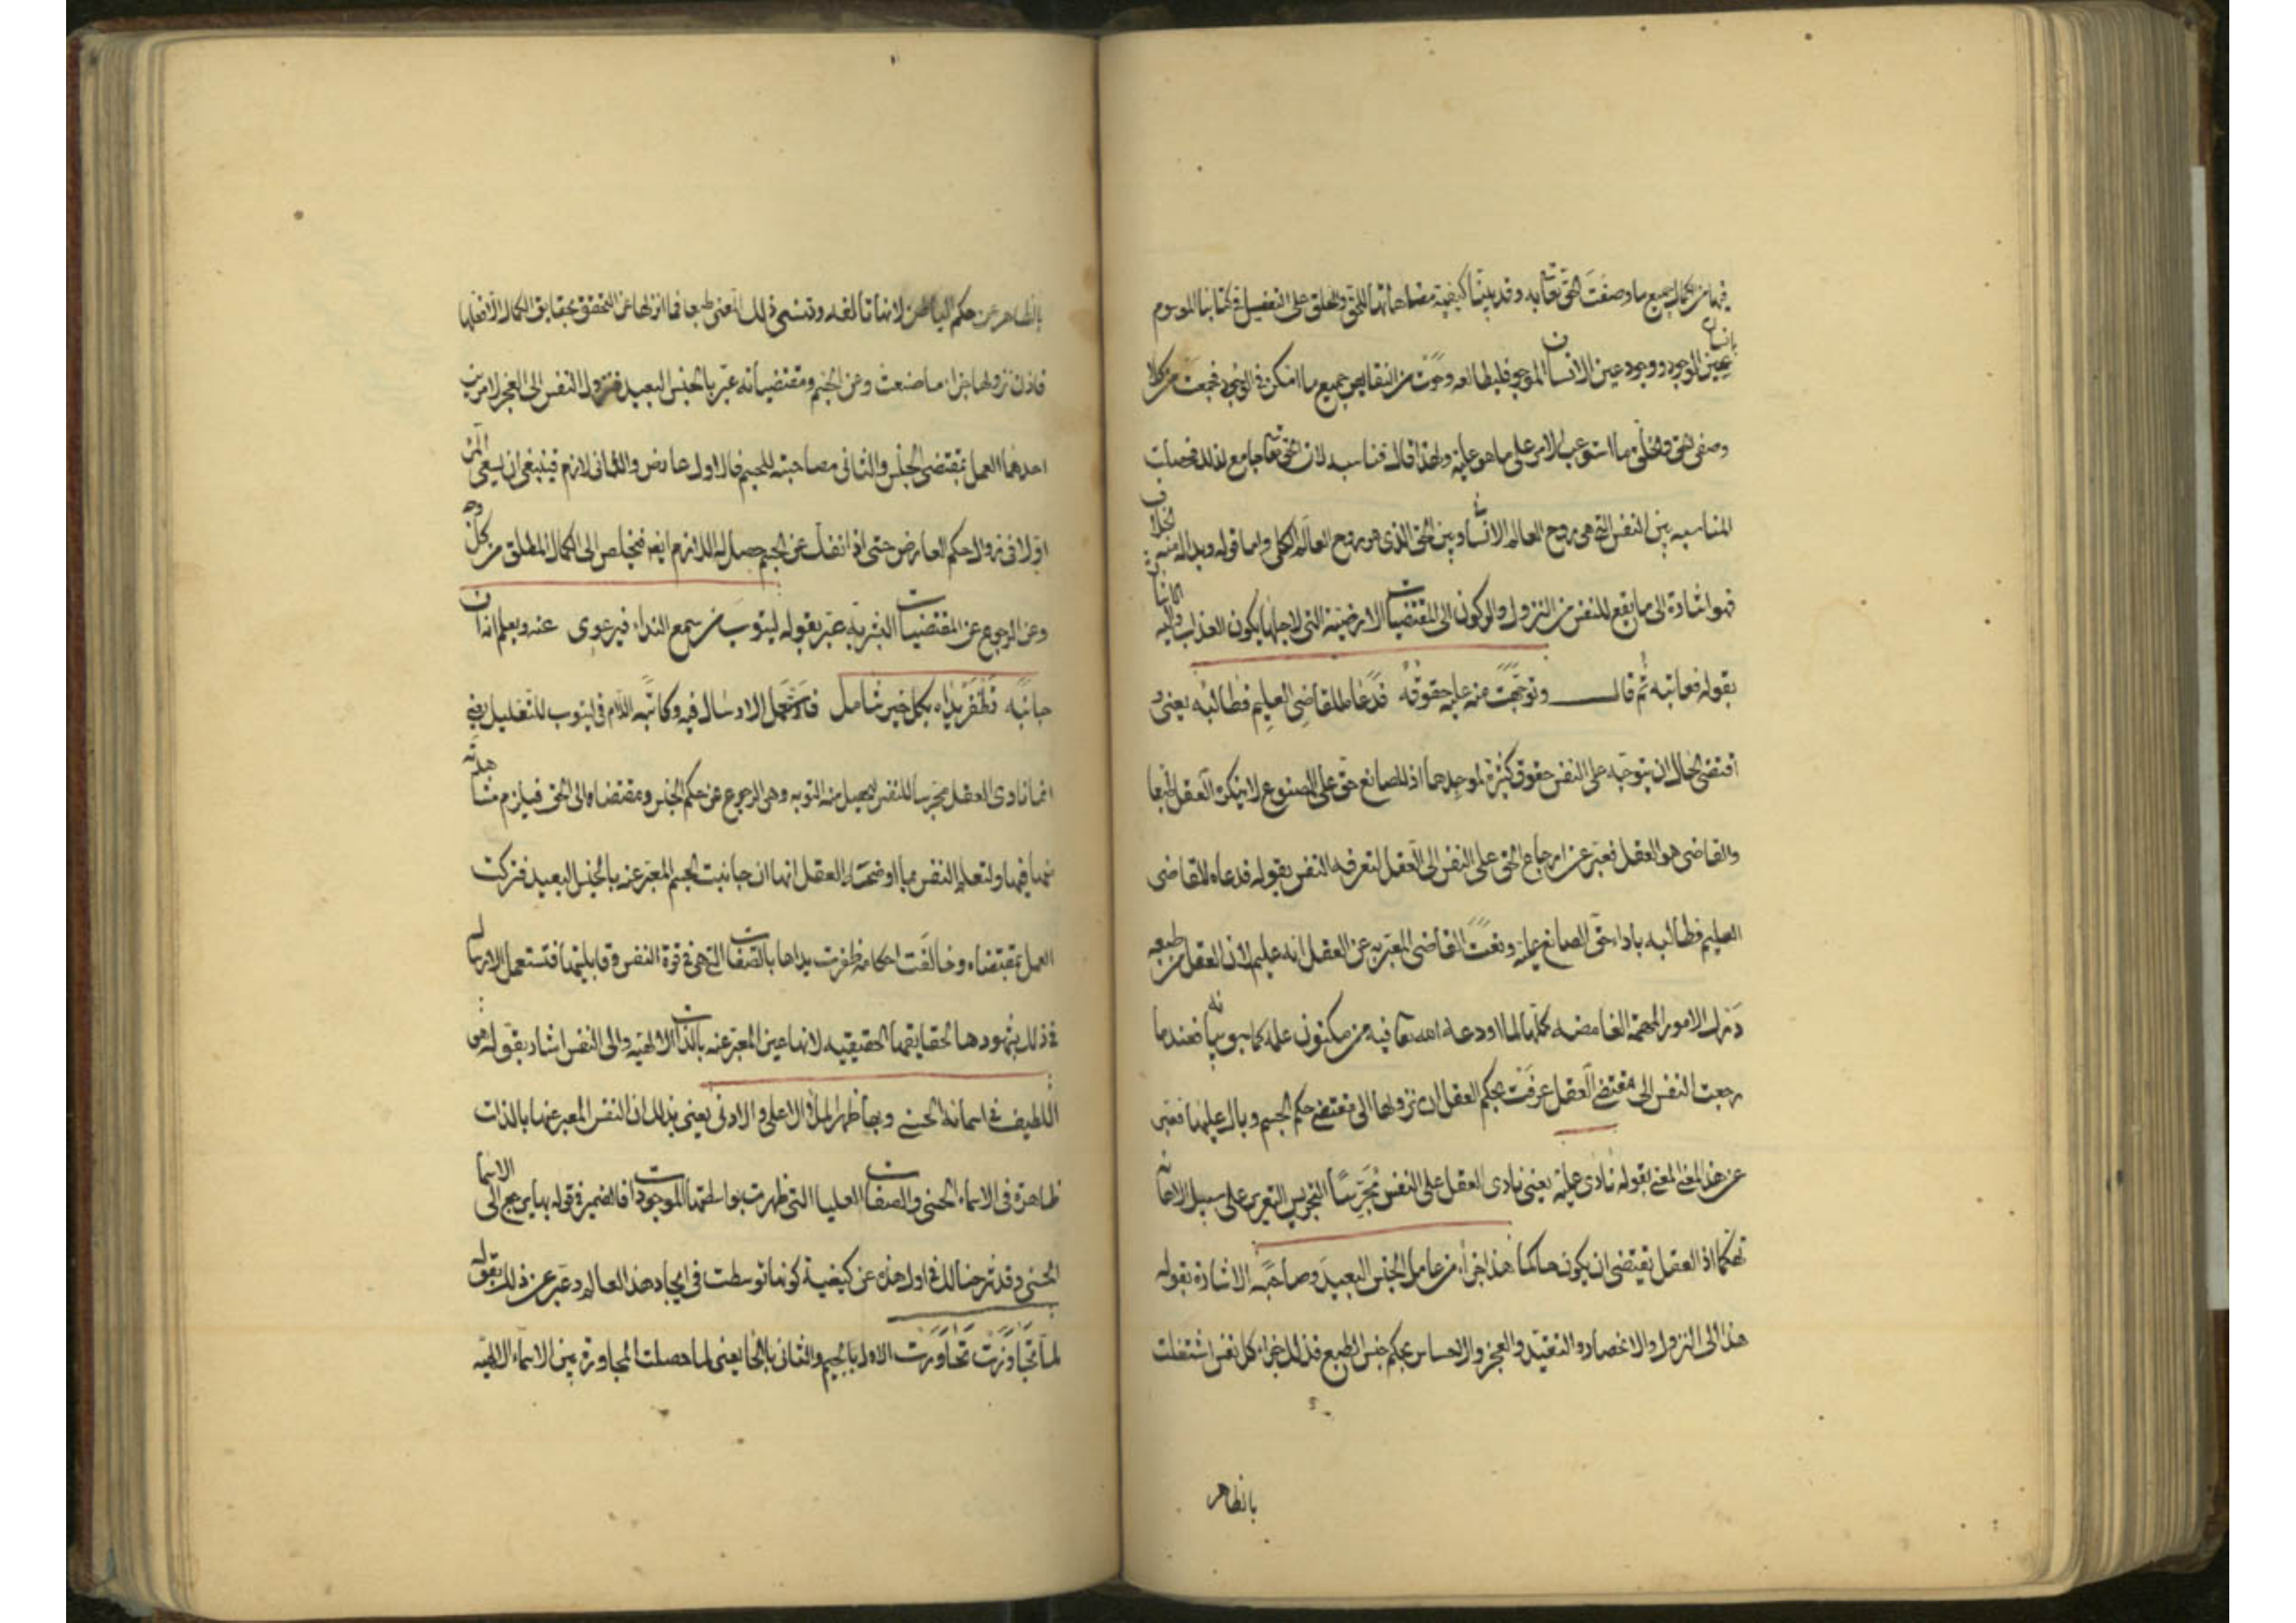 فيها من الكمال جميع ما وصفت الحق تعالى به وقد بينا كيفية مضاهاتها للحق والخلق على التفصيل في كتابنا الموسوم بانسان
عين الوجود ووجود عين الانسان الموجود فليطالعه وحوت من النقايص جميع ما امكن في الوجود فجمعت من كلا
وصفي الحق والخلق ما استوعب الامر على ما هو عليه ولهذا قال فناسبه لان الحق تعالى جامع لذلك فحصلت
المناسبه بين النفس التي هي روح العالم الانساني وبين الحق الذي هو روح العالم الكلي واما قوله وبدا له منه الخلاف
فهو اشارة الى ما يقع للنفس من النزول والركون الى المقتضيات الارضية التي لاجلها يكون العذاب واليه الاشارة
بقوله فعاتبه ثم قال وتوجهت منه عليه حقوقه فدعاه للقاضي العليم فطالبه يعني و
اقتضى الحال ان يتوجه على النفس حقوق كثيرة لموجدها اذ للصانع حق على المصنوع لا ينكره العقل طبعا
والقاضي هو العقل فعبر عن ارجاع الحق على النفس الى العقل لتعرفه النفس بقوله فدعاه للقاضي
العليم فطالبه باداء حق الصانع عليه ونعت القاضي المعبر به عن العقل انه عليم لان العقل من طبعه
درك الامور المهمة الغامضه كلها لما اودعه الله تعالى فيه من مكنون علمه كما سبق بيانه فعندما
رجعت النفس الى مقتضى العقل عرفت بحكم العقل ان نزولها الى مقتضى حكم الجسم وبال عليها فعبر
عن هذا المعنى بقوله نادى عليه يعني نادى العقل على النفس مجرسا التجريس التعزير على سبيل الاهانه
تهكما اذ العقل يقتضي ان يكون حاكما هذا جزاء من عامل الجنس البعيد وصاحبه الاشارة بقوله
هذا الى النزول والانحصار والتقييد والعجز والانحباس بحكم حبس الطبع فذلك جزاء كل نفس اشتغلت
بالظاهر
بالظاهر عن حكم الباطن لانها تالفه وتنسى ذلك المعنى طبعا فما انزلها عن التحقق بحقايق الكمال الا فعلها
فاذن نزولها جزاء ما صنعت وعن الجسم ومقتضياته عبر بالجنس البعيد فنزول النفس الى العجز لامرين
احدهما العمل بمقتضى الجنس والثاني مصاحبته للجسم فالاول عارض والثاني لازم فينبغي ان يسعى المرء
اولا في زوال حكم العارض حتى اذا انفك عن الجسم حصل له اللازم ايضا فتخلص الى الكمال المطلق من كل وجه
وعن الرجوع عن المقتضيات البشرية عبر بقوله ليتوب من سمع النداء فيرعوى عنه ويعلم انه ان
جانبه تظفر يداه بكل خير شامل فاستعمل الارسال فيه وكانه اللام في ليتوب للتعليل يعني
انما نادى العقل مجرسا للنفس ليحصل منه التوبه وهي الرجوع عن حكم الجنس ومقتضاه الى الحق فيلزم مشاهدته
فيها ولتعلم النفس مما اوضحه العقل انها ان جانبت الجسم المعبر عنه بالجنس البعيد فتركت
العمل بمقتضاه وخالفت احكامه ظفرت يداها بالصفات التي هي في قوة النفس وقابليتها فتستعمل الارسال
في ذلك بشهودها لحقايقها الحقيقيه لانها عين المعبر عنه بالذات الالهيه والى النفس اشار بقوله هي
اللطيف في اسمائه الحسنى وبها ظهر الملأ الاعلى والادنى يعني بذلك ان النفس المعبر عنها بالذات
ظاهرة في الاسماء الحسنى والصفات العليا التي ظهرت بواسطتها الموجودات فالضمير في قوله بها يرجع الى الاسما
الحسنى وقد شرحنا لك في اول هذه عن كيفية كونها توسطت في ايجاد هذا العالم وعبر عن ذلك بقوله
لما تجاورت تحاورت الاول بالجيم والثاني بالحا يعني لما حصلت المجاورة بين الاسماء الالهية